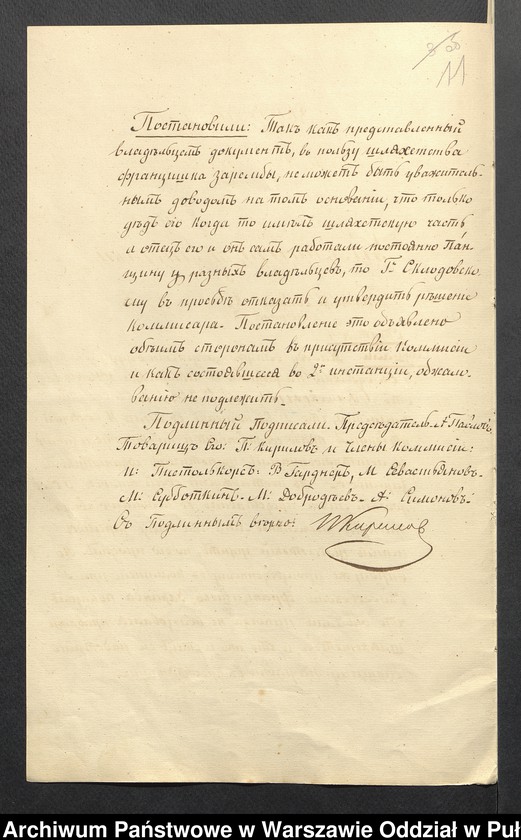 11
Постановили: Такъ какъ представленный
владѣльцемъ документъ, въ пользу шляхетства
францишка зарембы, неможетъ быть уважитель-
нымъ доводомъ на томъ основаніи, что только
дѣдъ его когда то имѣлъ шляхетскую часть
а отецъ его и онъ самъ работали постоянно Пан-
щину у разныхъ владѣльцевъ, то Гну Склодовско-
му въ просьбѣ отказать и утвердить рѣшеніе
Коммисара. Постановленіе это объявлено
обѣимъ сторонамъ въ присутствіи Коммисіи
и какъ состоявшееся во 2й инстанціи, обжало-
ванію не подлежитъ.
Подлинный Подписали. Предсѣдатель
Товарищъ Его: П. Кириловъ и Члены Коммисіи:
И: Пистолькорсъ: В Гарднеръ, М Севастьяновъ.
М: Субботкинъ. М: Добродѣевъ. А: Симоновъ.
Съ Подлиннымъ вѣрно:
Archiwum Państwowe w Warszawie Oddział w Puł